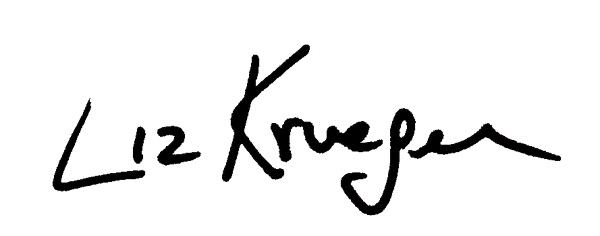 Liz Krueger